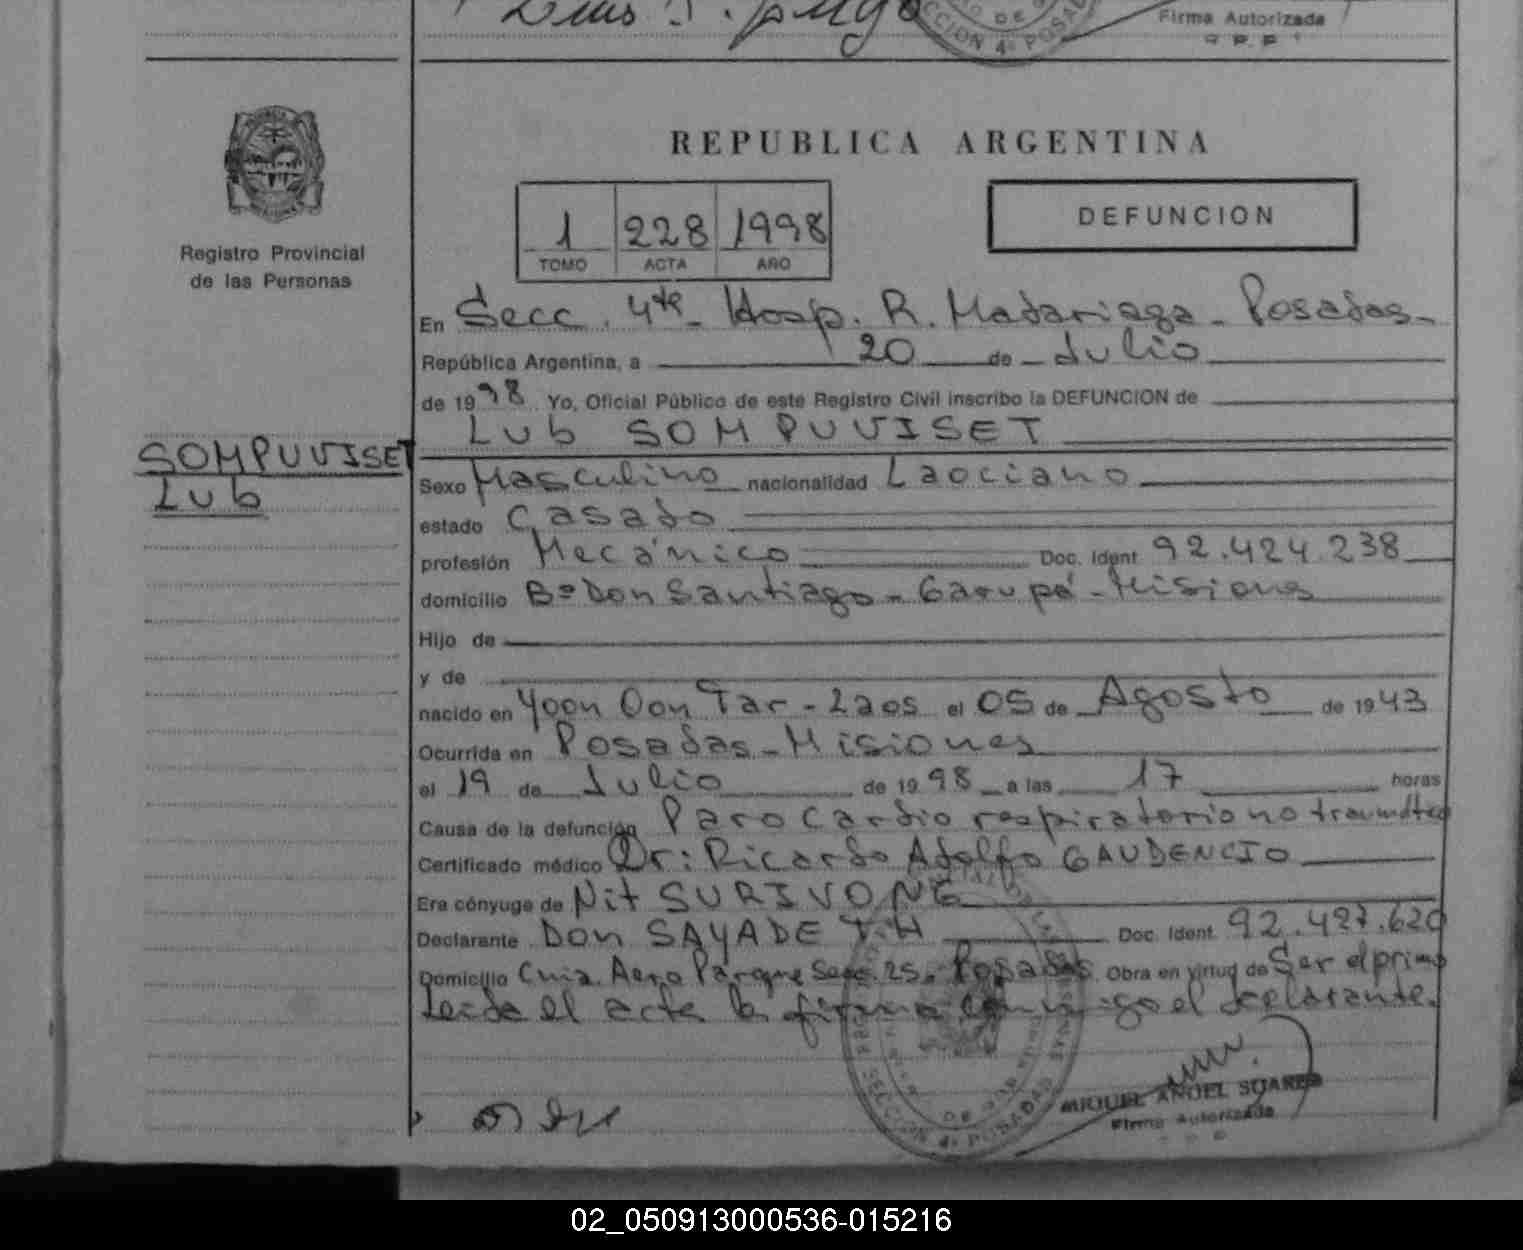 Luis
SECCION 4ª POSADAS
Firma Autorizada
REPUBLICA ARGENTINA
1 228 1998
TOMO ACTA AÑO
DEFUNCION
Registro Provincial
de las Personas
En Secc. 4ta - Hosp. R. Madariaga - Posadas -
República Argentina, a 20 de Julio
de 1998 Yo, Oficial Público de este Registro Civil inscribo la DEFUNCION de
Lub SOMPUVISET
SOMPUVISET
Lub
Sexo Masculino nacionalidad Laociano
estado Casado
profesión Mecánico Doc. Ident. 92.424.238
domicilio Bº Don Santiago - Garupá - Misiones
Hijo de
y de
nacido en Yoon Don Tar - Laos el 05 de Agosto de 1943
Ocurrida en Posadas - Misiones
el 19 de Julio de 1998 a las 17 horas
Causa de la defunción Paro Cardio respiratorio no traumático
Certificado médico Dr: Ricardo Adolfo GAUDENCIO
Era cónyuge de Nit SURIVONG
Declarante Don SAYADETH Doc. Ident. 92.427.620
Domicilio Cnia. Aero Parque Secc. 25. Posadas. Obra en virtud de Ser el primo
Leída el acta la firma conmigo el declarante.
SECCION 4ª POSADAS
MIGUEL ANGEL SUAREZ
Firma Autorizada
02_050913000536-015216